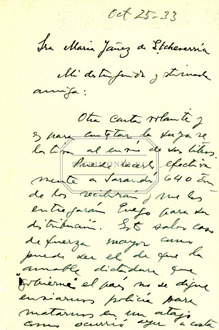 Oct 25-33
Sra Maria Yañez de Echeverria
Mi distinguida y estimada
amiga:
Otra carta volante y
es para contestar la suya re-
lativa al envío de sus libros.
Puede hacerlo efectiva
mente a Sarandí 640 don
de los recibirán y me los
entregarán luego para su
distribución. Esto salvo caso
de fuerza mayor como
puede ser el de que la
amable dictadura que
gobierna el país no se digne
enviarnos policía para
matarnos en un atajo
como ocurrió